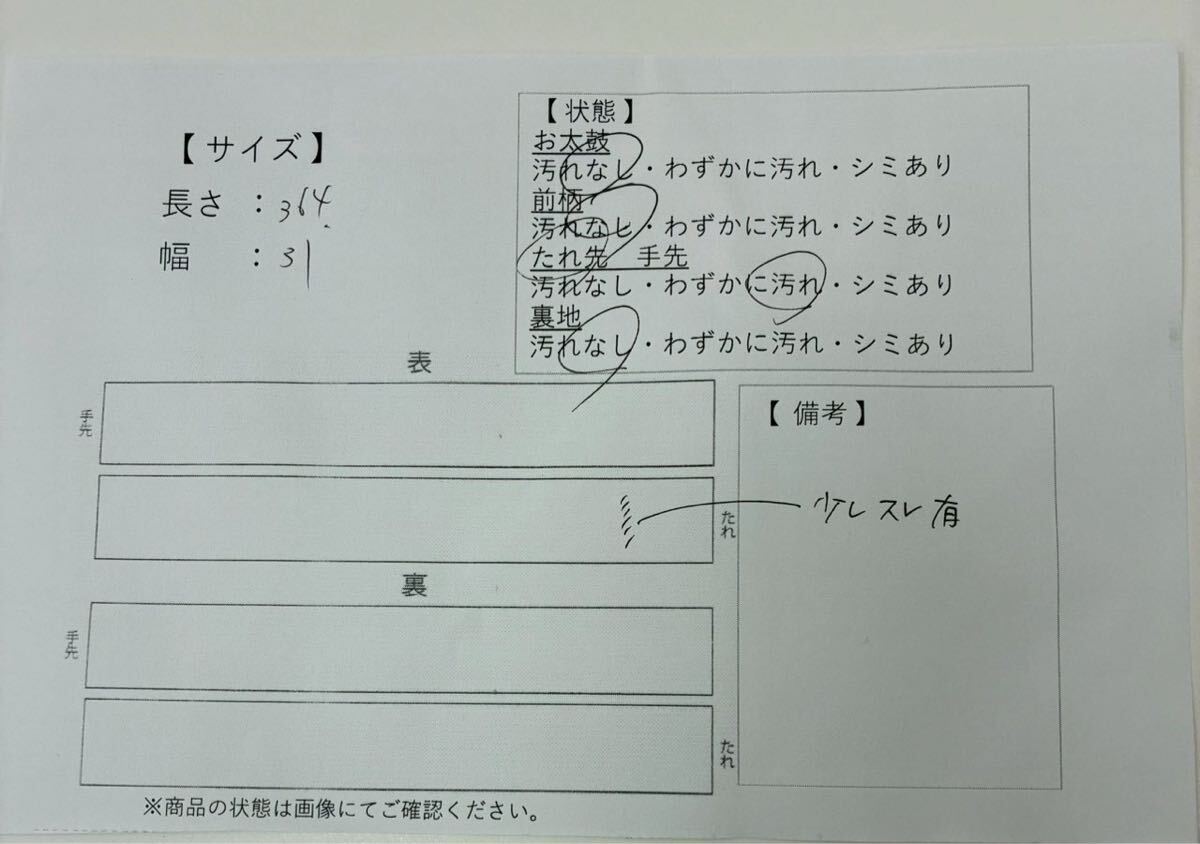 【 サイズ 】
長さ ：364.
幅 ：31
【 状態 】
お太鼓
汚れなし・わずかに汚れ・シミあり
前柄
汚れなし・わずかに汚れ・シミあり
たれ先 手先
汚れなし・わずかに汚れ・シミあり
裏地
汚れなし・わずかに汚れ・シミあり
表
手先
たれ
【 備考 】
少しスレ有
裏
手先
たれ
※商品の状態は画像にてご確認ください。